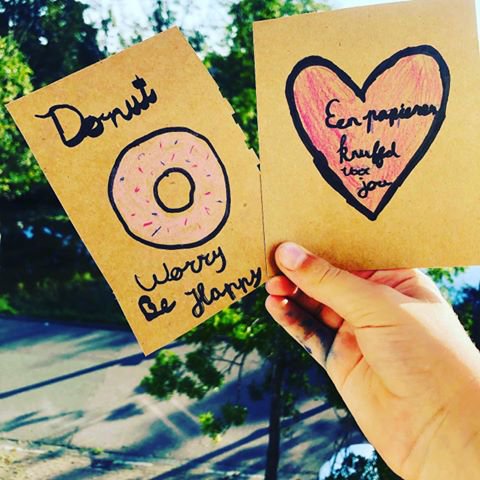 Donut
Worry
Be Happy
Een papieren
knuffel
voor
jou